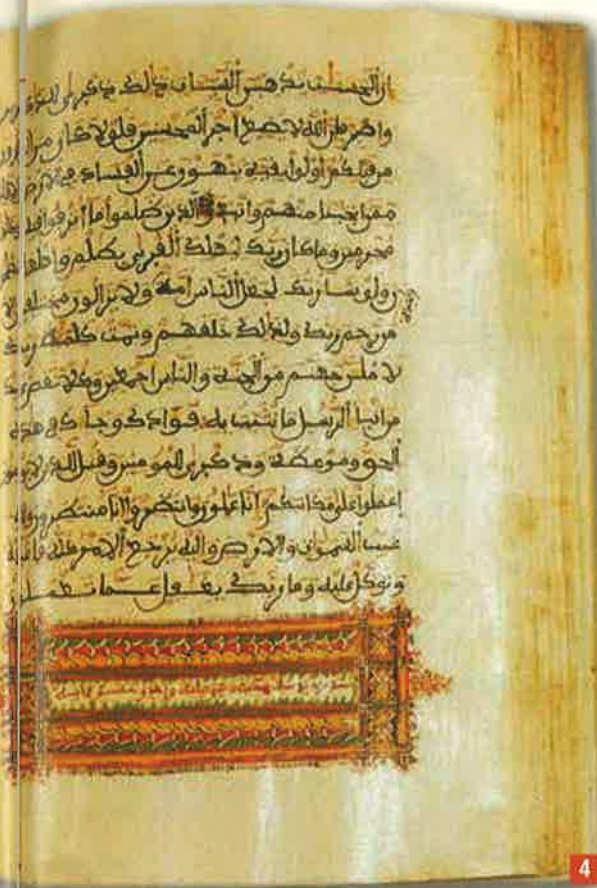 ان الحسنت يذهبن السيات ذلك ذكرى
واصبر فان الله لا يضيع اجر المحسنين فلولا كان من
من قبلكم اولوا بقية ينهون عن الفساد في الارض
ممن انجينا منهم واتبع الذين ظلموا ما اترفوا فيه
مجرمين وما كان ربك ليهلك القرى بظلم واهلها
ن ولو شا ربك لجعل الناس امة ولا يزالون مختلفين
من رحم ربك ولذلك خلقهم وتمت كلمة ربك
لاملن جهنم من الجنة والناس اجمعين وكلا نقص
من انبا الرسل ما نثبت به فوادك وجاك في هذه
الحق وموعظة وذكرى للمومنين وقل للذين لا
اعملوا على مكانتكم انا عملون وانتظروا انا منتظرون
غيب السموت والارض واليه يرجع الامر كله
وتوكل عليه وما ربك بغفل عما تعملون
4